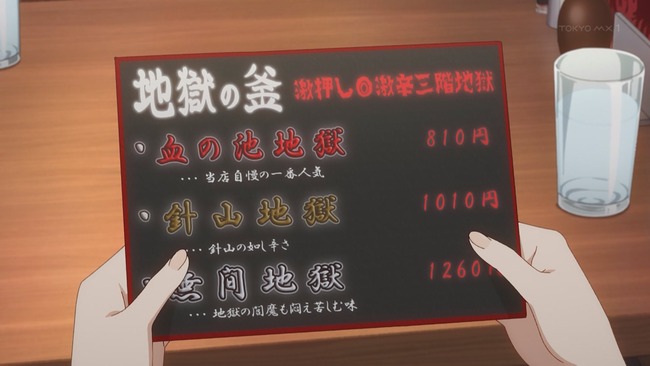 TOKYO MX 1
地獄の釜
激押しの激辛三階地獄
・血の池地獄
810円
・・・当店自慢の一番人気
・針山地獄
1010円
・・・針山の如し辛さ
無間地獄
1260円
・・・地獄の閻魔も悶え苦しむ味